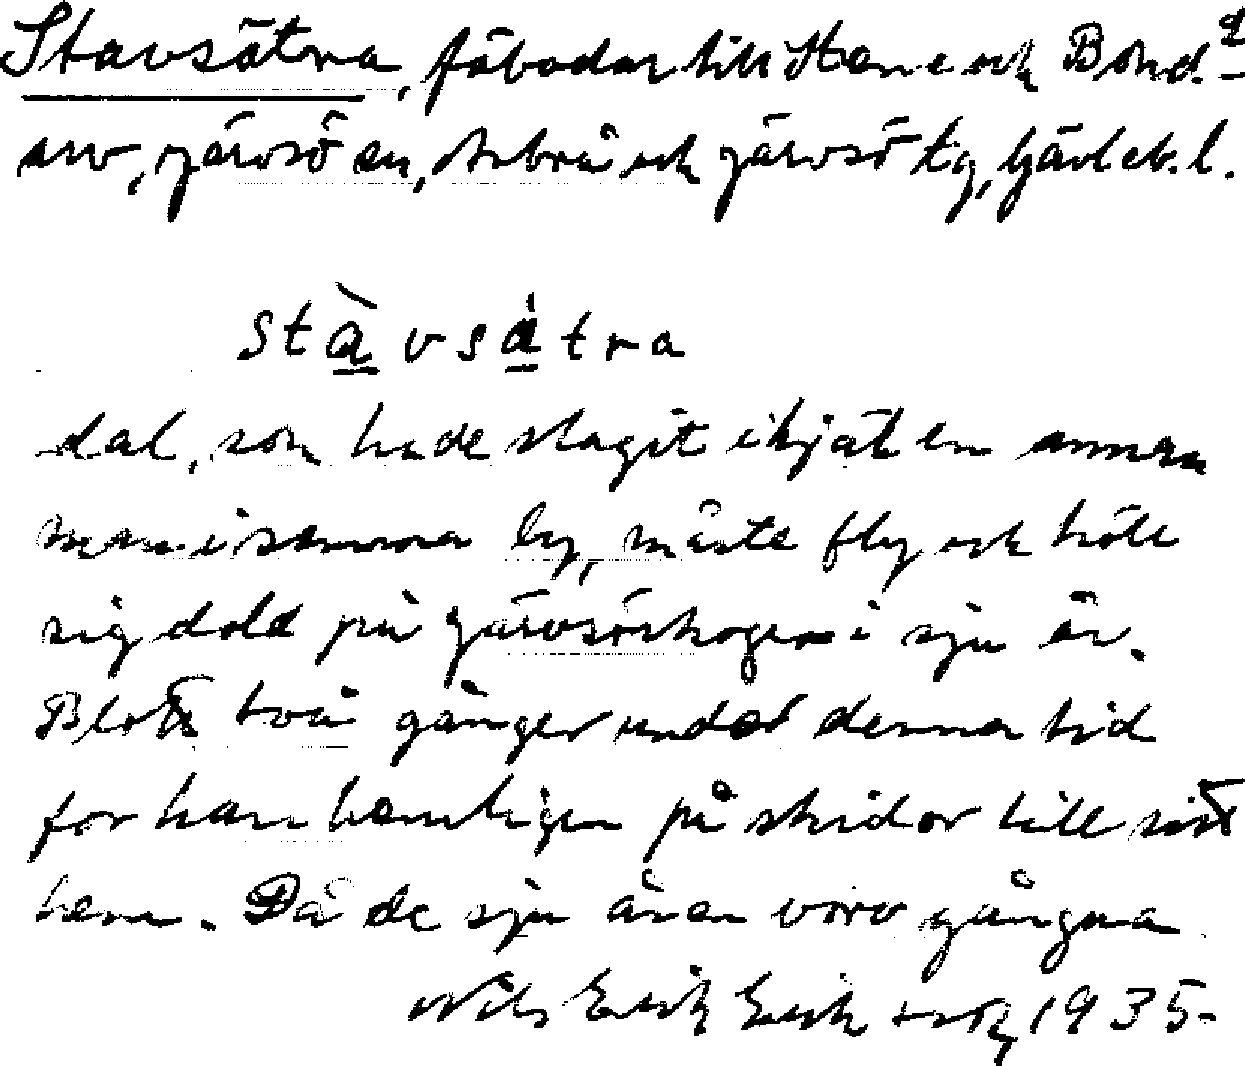 Stavsätra, fäbodar till Stene och Bond-
arv, Järvsö sn, Arbrå och Järvsö tg, Gävleb. l.
Stàvsàtra
dal, som hade slagit ihjäl en annan
man i samma by, måste fly och höll
sig dold på Järvsöskogen i sju år.
Blott två gånger under denna tid
for han hemligen på skidor till sitt
hem. Då de sju åren voro gångna
Nils Erik Eriksson, 1935.